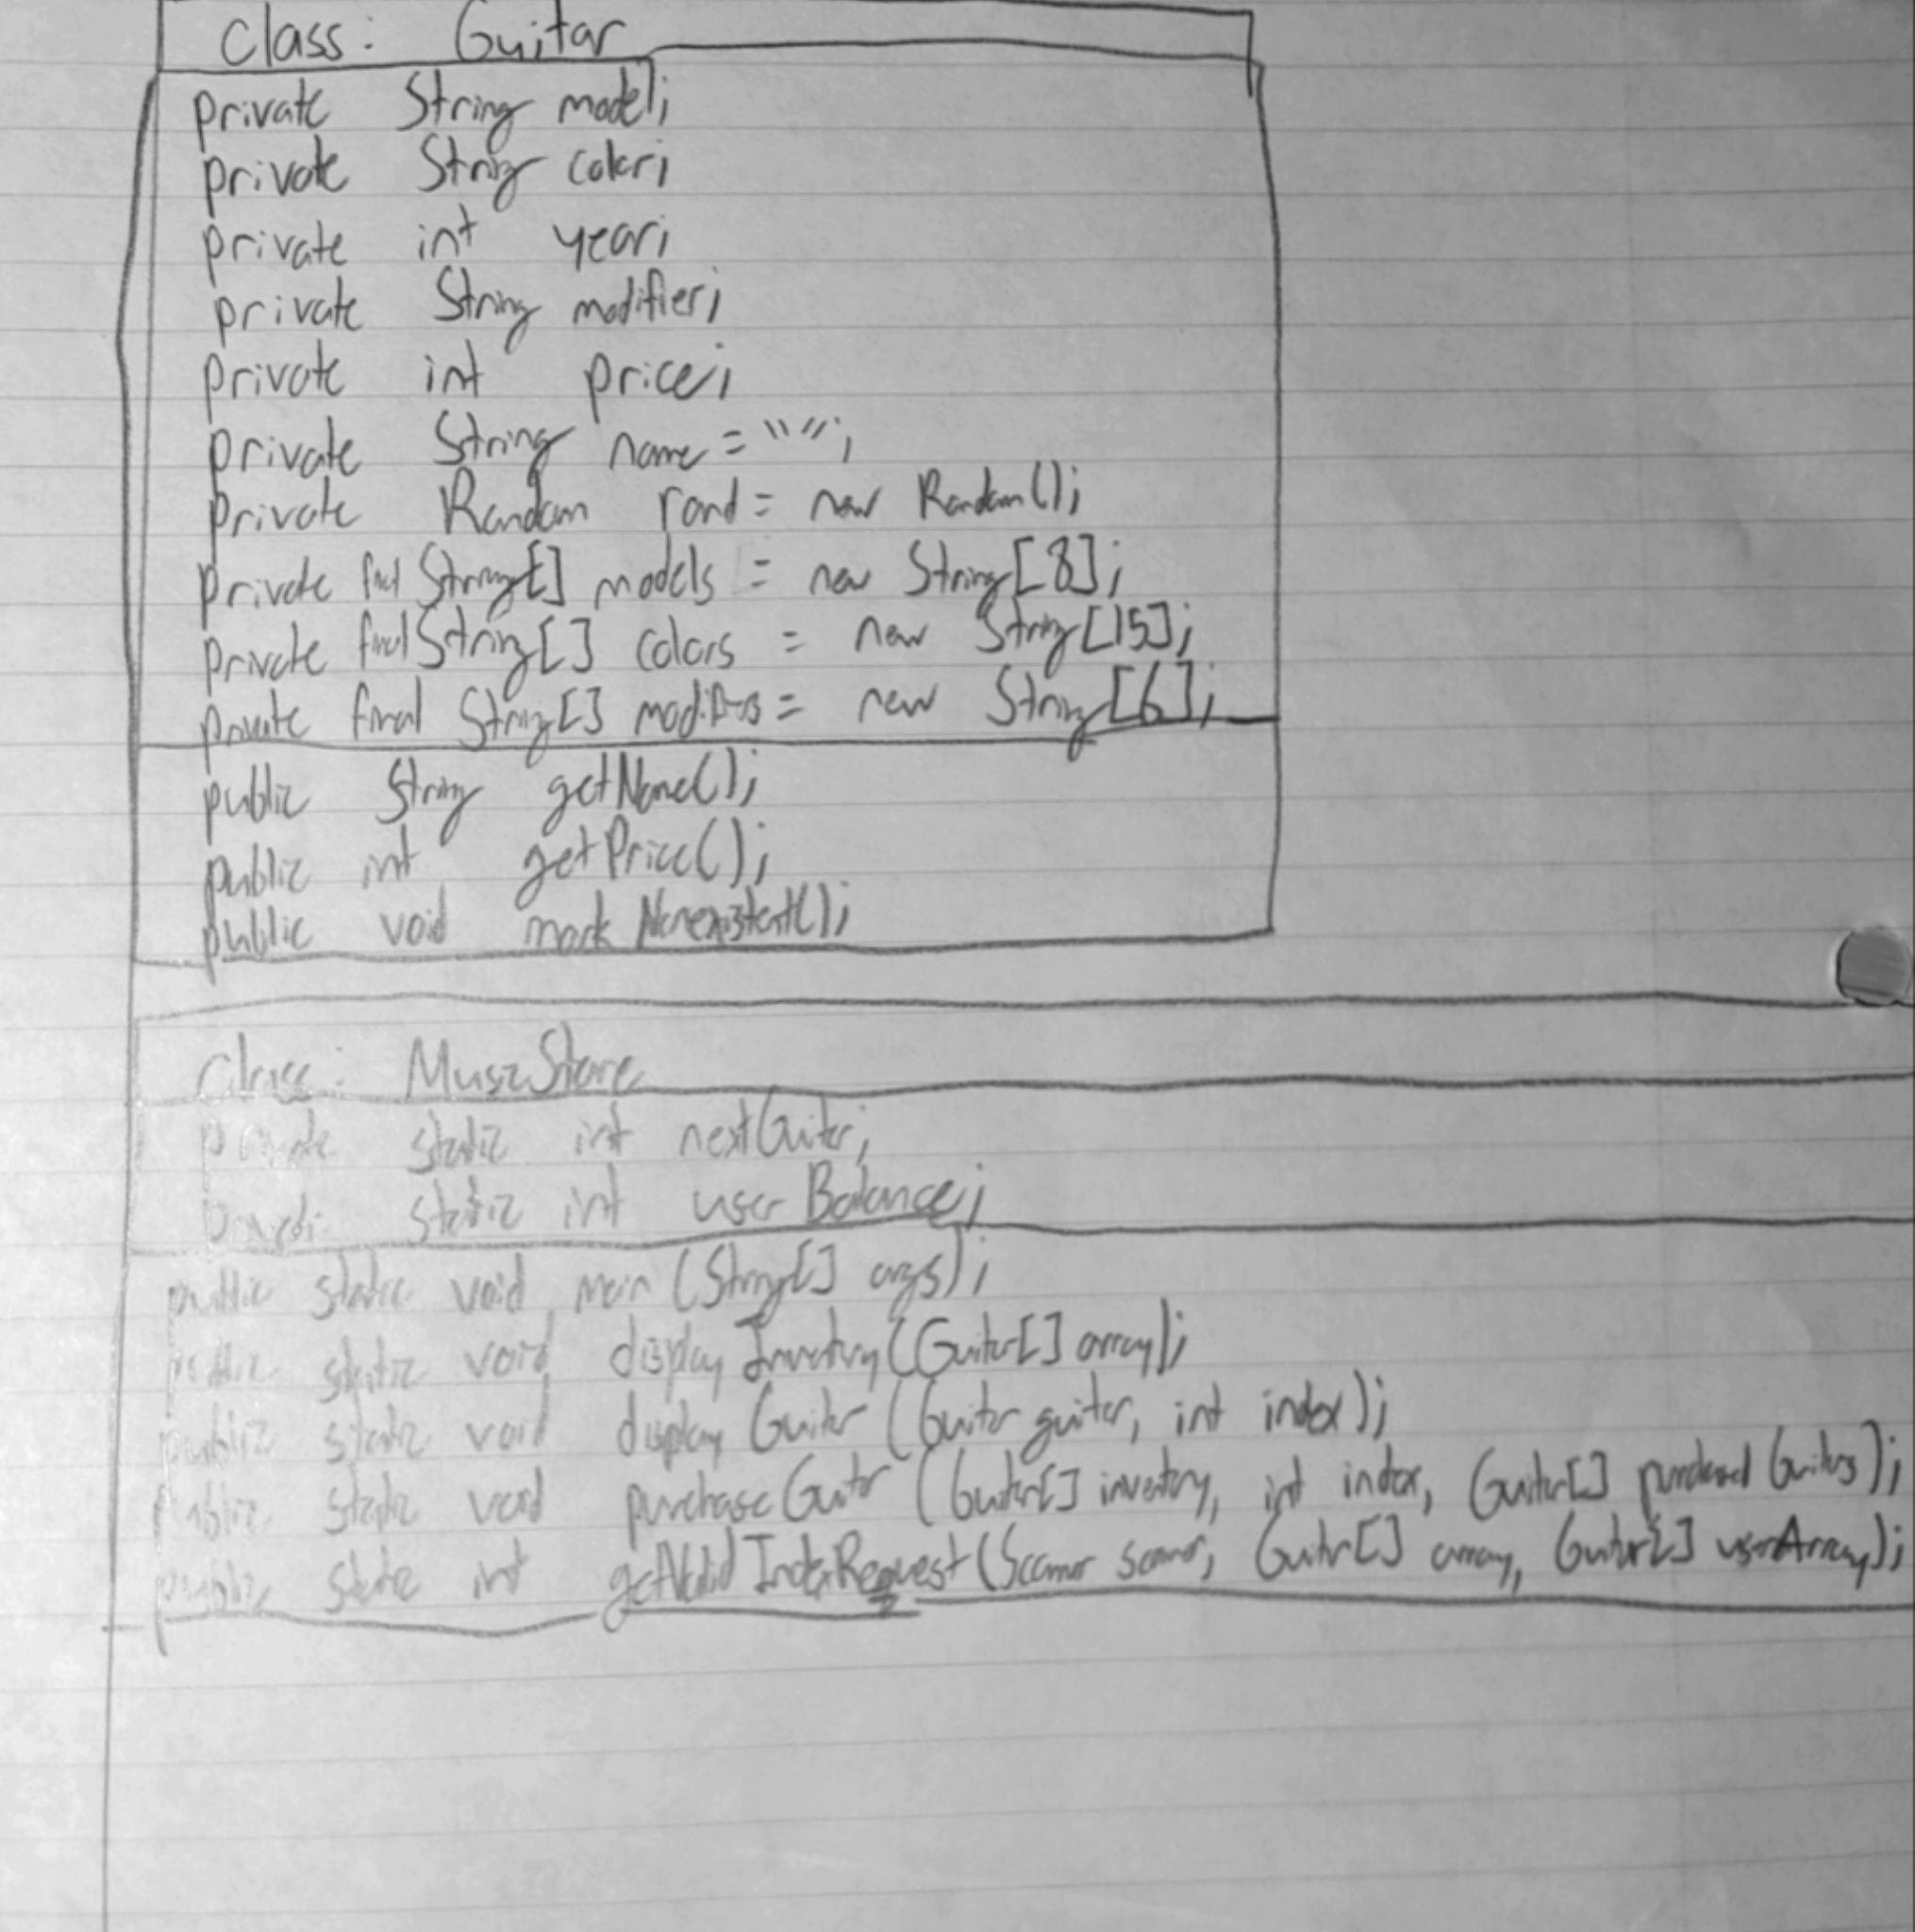 class: Guitar
private String model;
private String color;
private int year;
private String modifier;
private int price;
private String name = "";
private Random rand = new Random();
private final String[] models = new String[8];
private final String[] colors = new String[15];
private final String[] modifiers = new String[6];
public String getName();
public int getPrice();
public void markNonexistent();
class: MusicStore
private static int nextGuitar;
private static int userBalance;
public static void main (String[] args);
public static void displayInventory(Guitar[] array);
public static void displayGuitar (Guitar guitar, int index);
public static void purchaseGuitar (Guitar[] inventory, int index, Guitar[] purchasedGuitars);
public static int getValidIndexRequest(Scanner scanner, Guitar[] array, Guitar[] userArray);